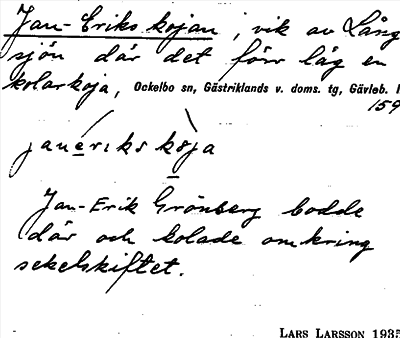 Jan-Eriks kojan, vik av Lång
sjön där det förr låg en
kolarkoja, Ockelbo sn, Gästriklands v. doms. tg, Gävleb. l
159
janeriks kòja
Jan-Erik Grönberg bodde
där och kolade omkring
sekelskiftet.
LARS LARSSON 1935